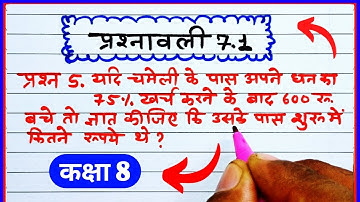 प्रश्नावली 7.1
प्रश्न 5. यदि चमेली के पास अपने धन का
75% खर्च करने के बाद 600 रू.
बचे तो ज्ञात कीजिए कि उसके पास शुरू में
कितने रूपये थे ?
कक्षा 8